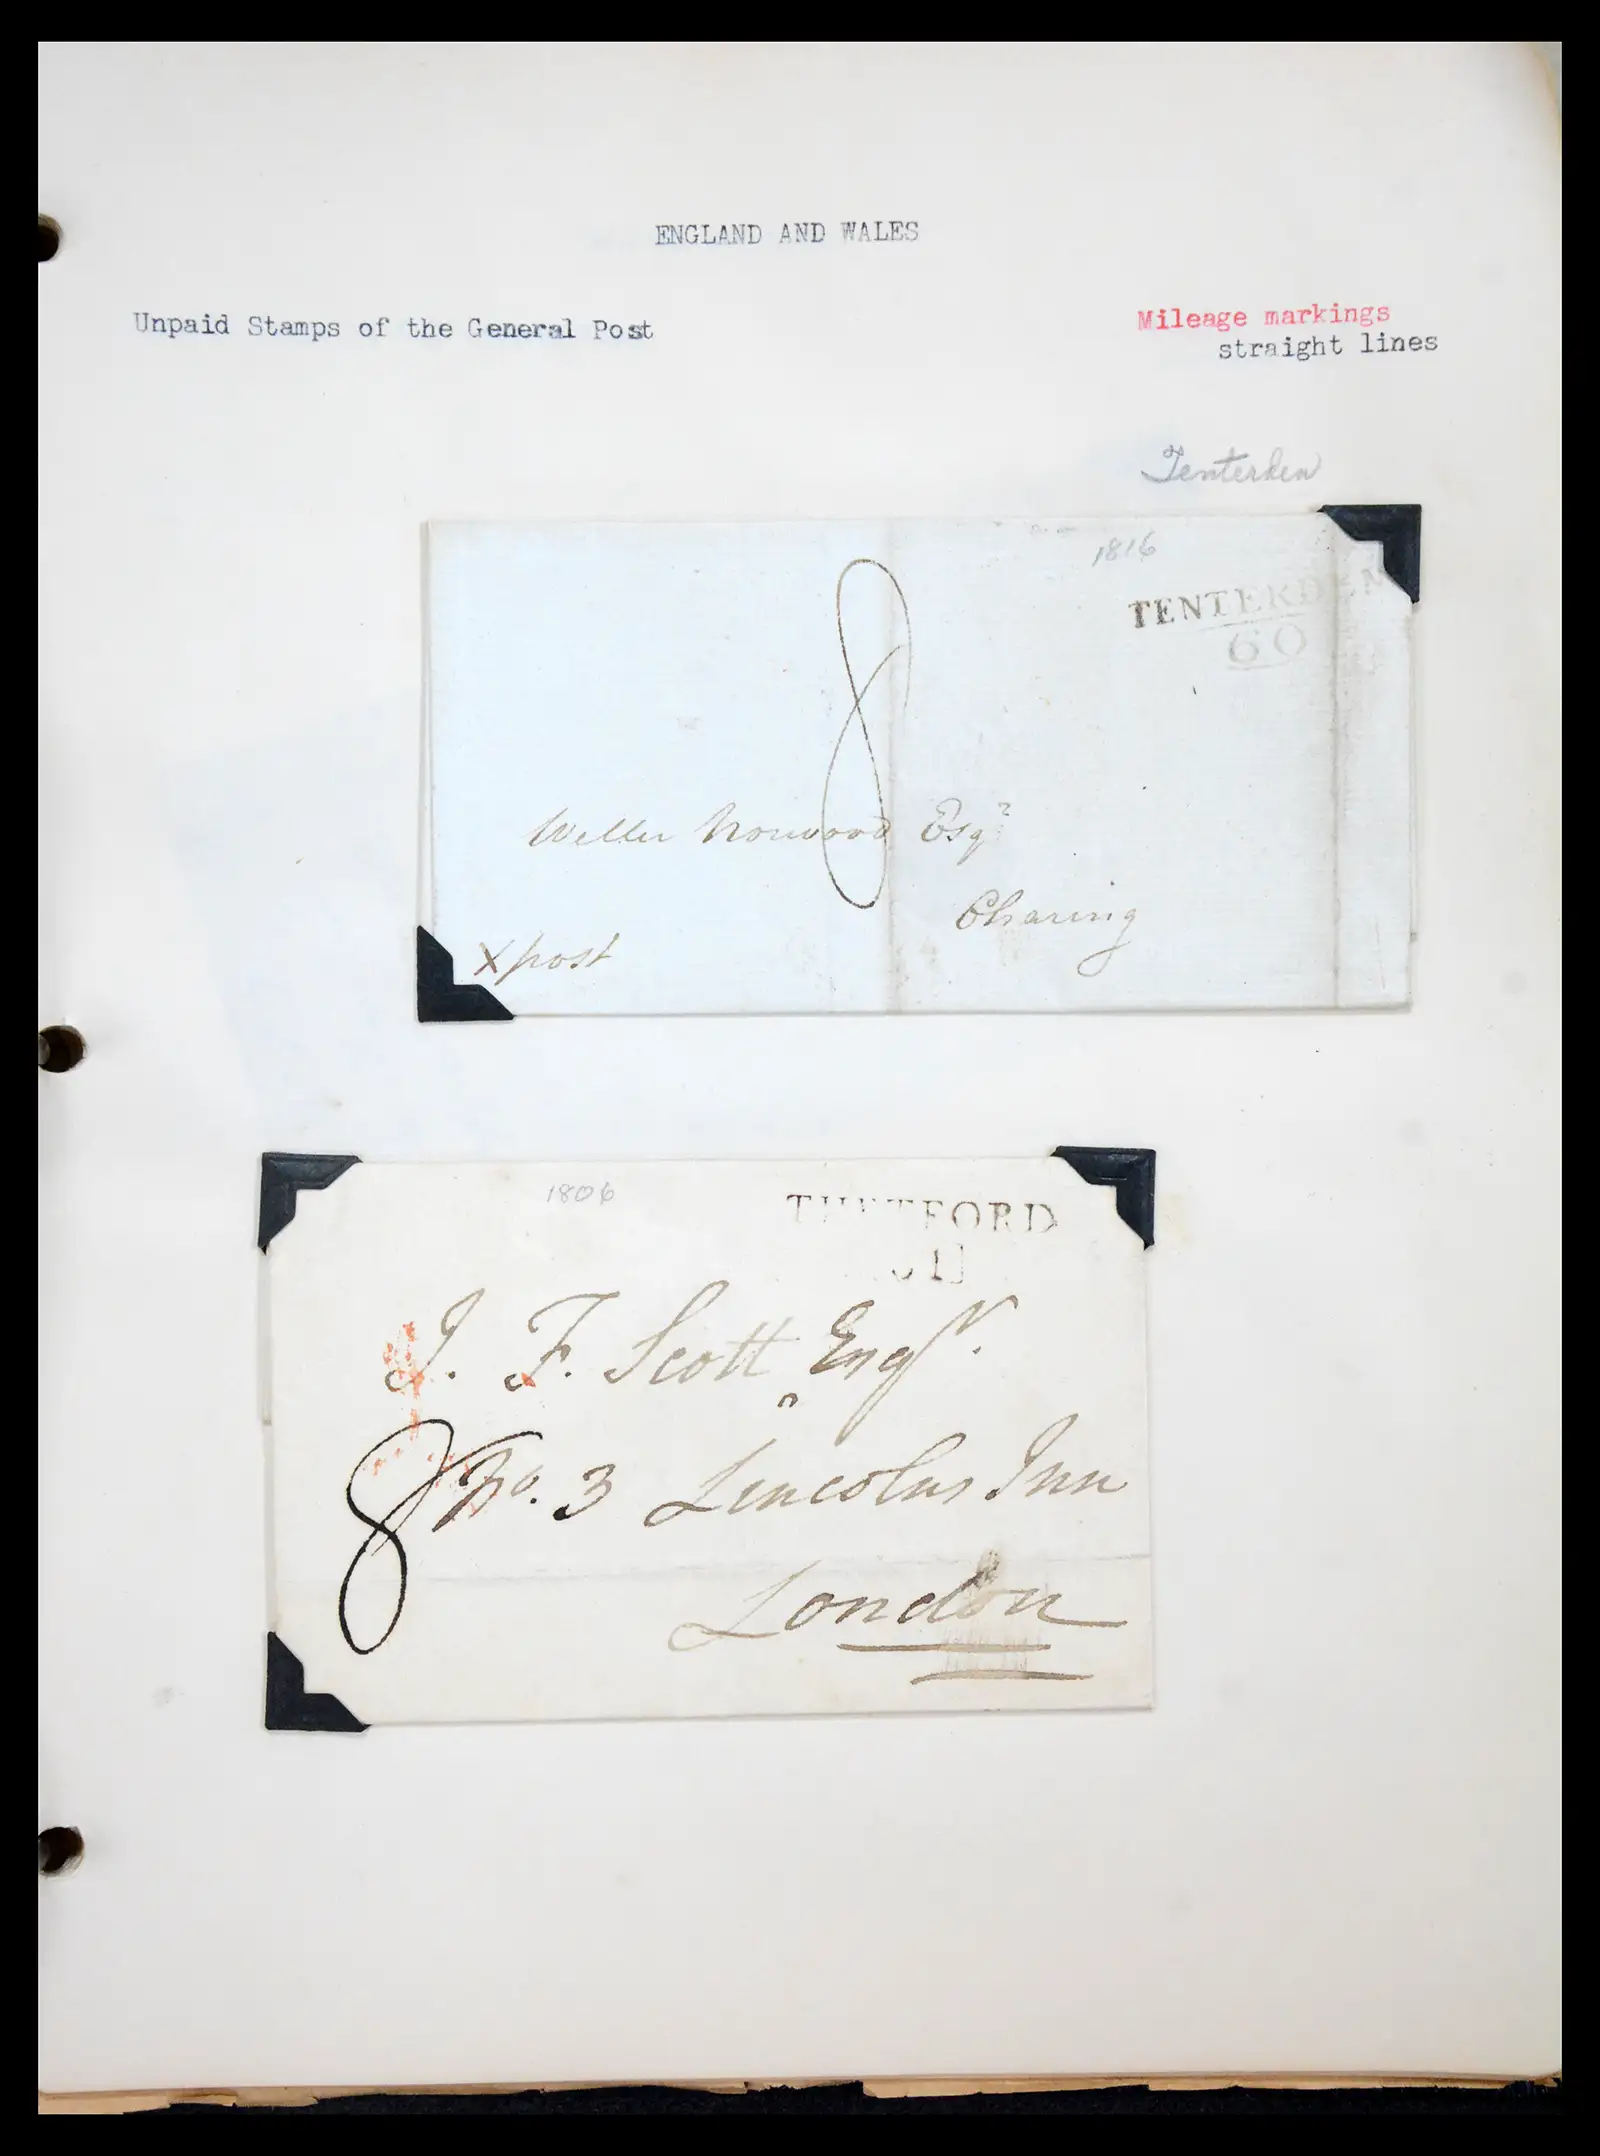 ENGLAND AND WALES
Unpaid Stamps of the General Post
Mileage markings
straight lines
Tenterden
1816
TENTERDEN
60
8
Weller Norwood Esqr
Charing
X post
1806
THETFORD
J. F. Scott Esqr.
8
No. 3 Lincolns Inn
London